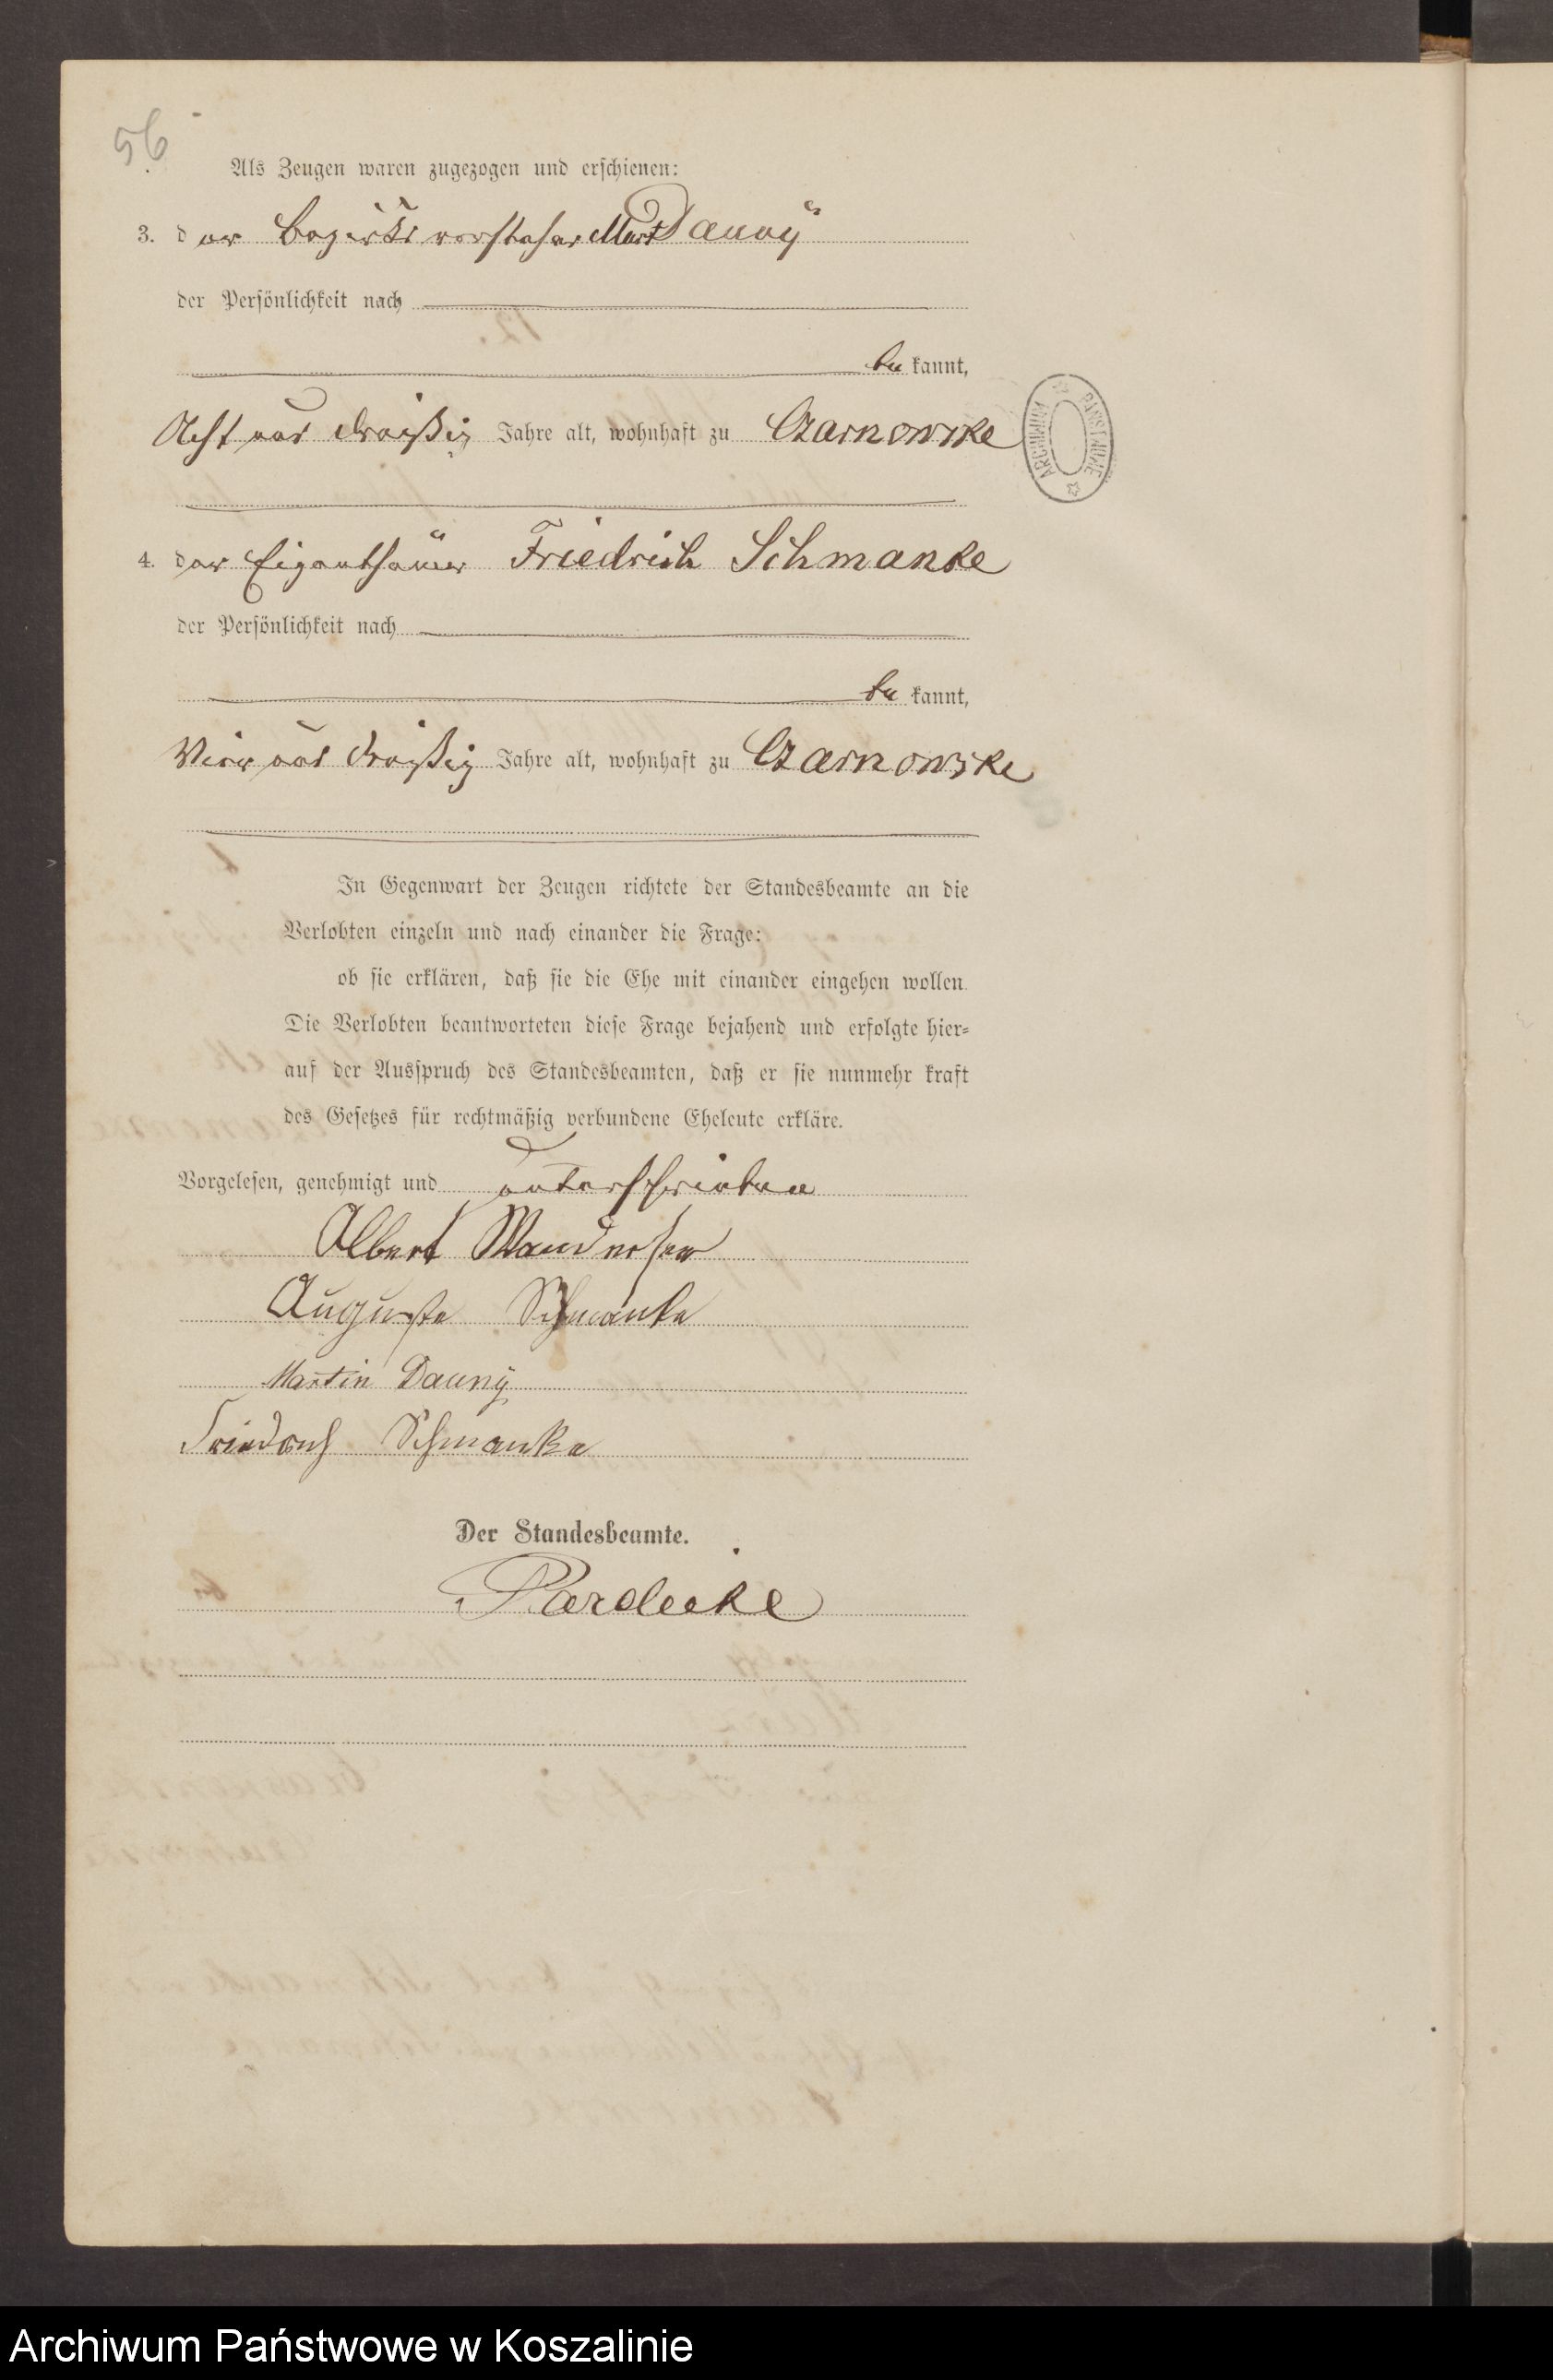 56
Als Zeugen waren zugezogen und erschienen:
3. der Bezirksvorsteher Mart Dauny
der Persönlichkeit nach
be kannt,
Acht und dreißig Jahre alt, wohnhaft zu Czarnowske
ARCHIWUM PAŃSTWOWE
4. der Eigenthümer Friedrich Schmanke
der Persönlichkeit nach
be kannt,
Vier und dreißig Jahre alt, wohnhaft zu Czarnowske
In Gegenwart der Zeugen richtete der Standesbeamte an die
Verlobten einzeln und nach einander die Frage:
ob sie erklären, daß sie die Ehe mit einander eingehen wollen.
Die Verlobten beantworteten diese Frage bejahend und erfolgte hier=
auf der Ausspruch des Standesbeamten, daß er sie nunmehr kraft
des Gesetzes für rechtmäßig verbundene Eheleute erkläre.
Vorgelesen, genehmigt und unterschrieben
Albert
Auguste Schmanke
Martin Dauny
Friedrich Schmanke
Der Standesbeamte.
Pardeike
Archiwum Państwowe w Koszalinie